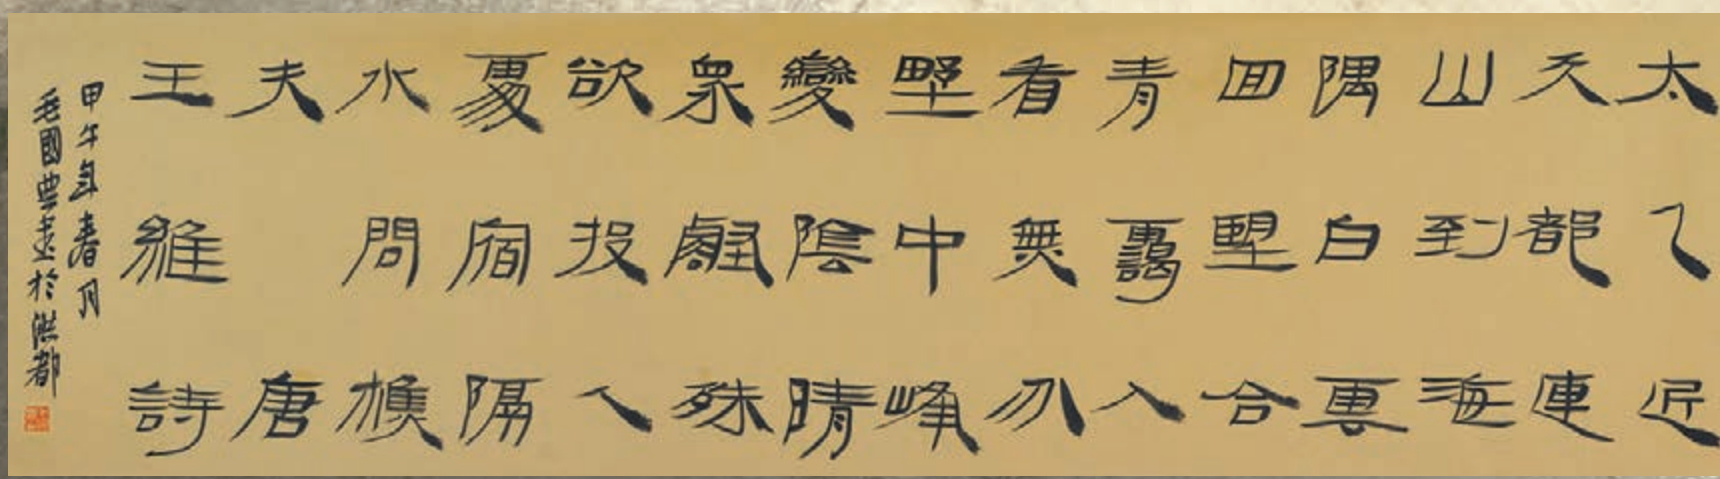 太乙近
天都連
山到海
隅白雲
回望合
青靄入
看無分
野中峰
變陰晴
衆壑殊
欲投人
處宿隔
水問樵
夫 唐
王維詩
甲午年春月
毛國典書於洪都